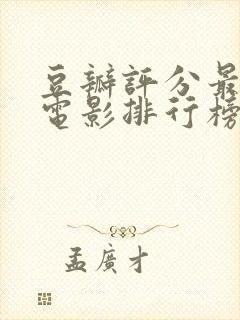 豆瓣評分最
電影排行榜
孟廣才